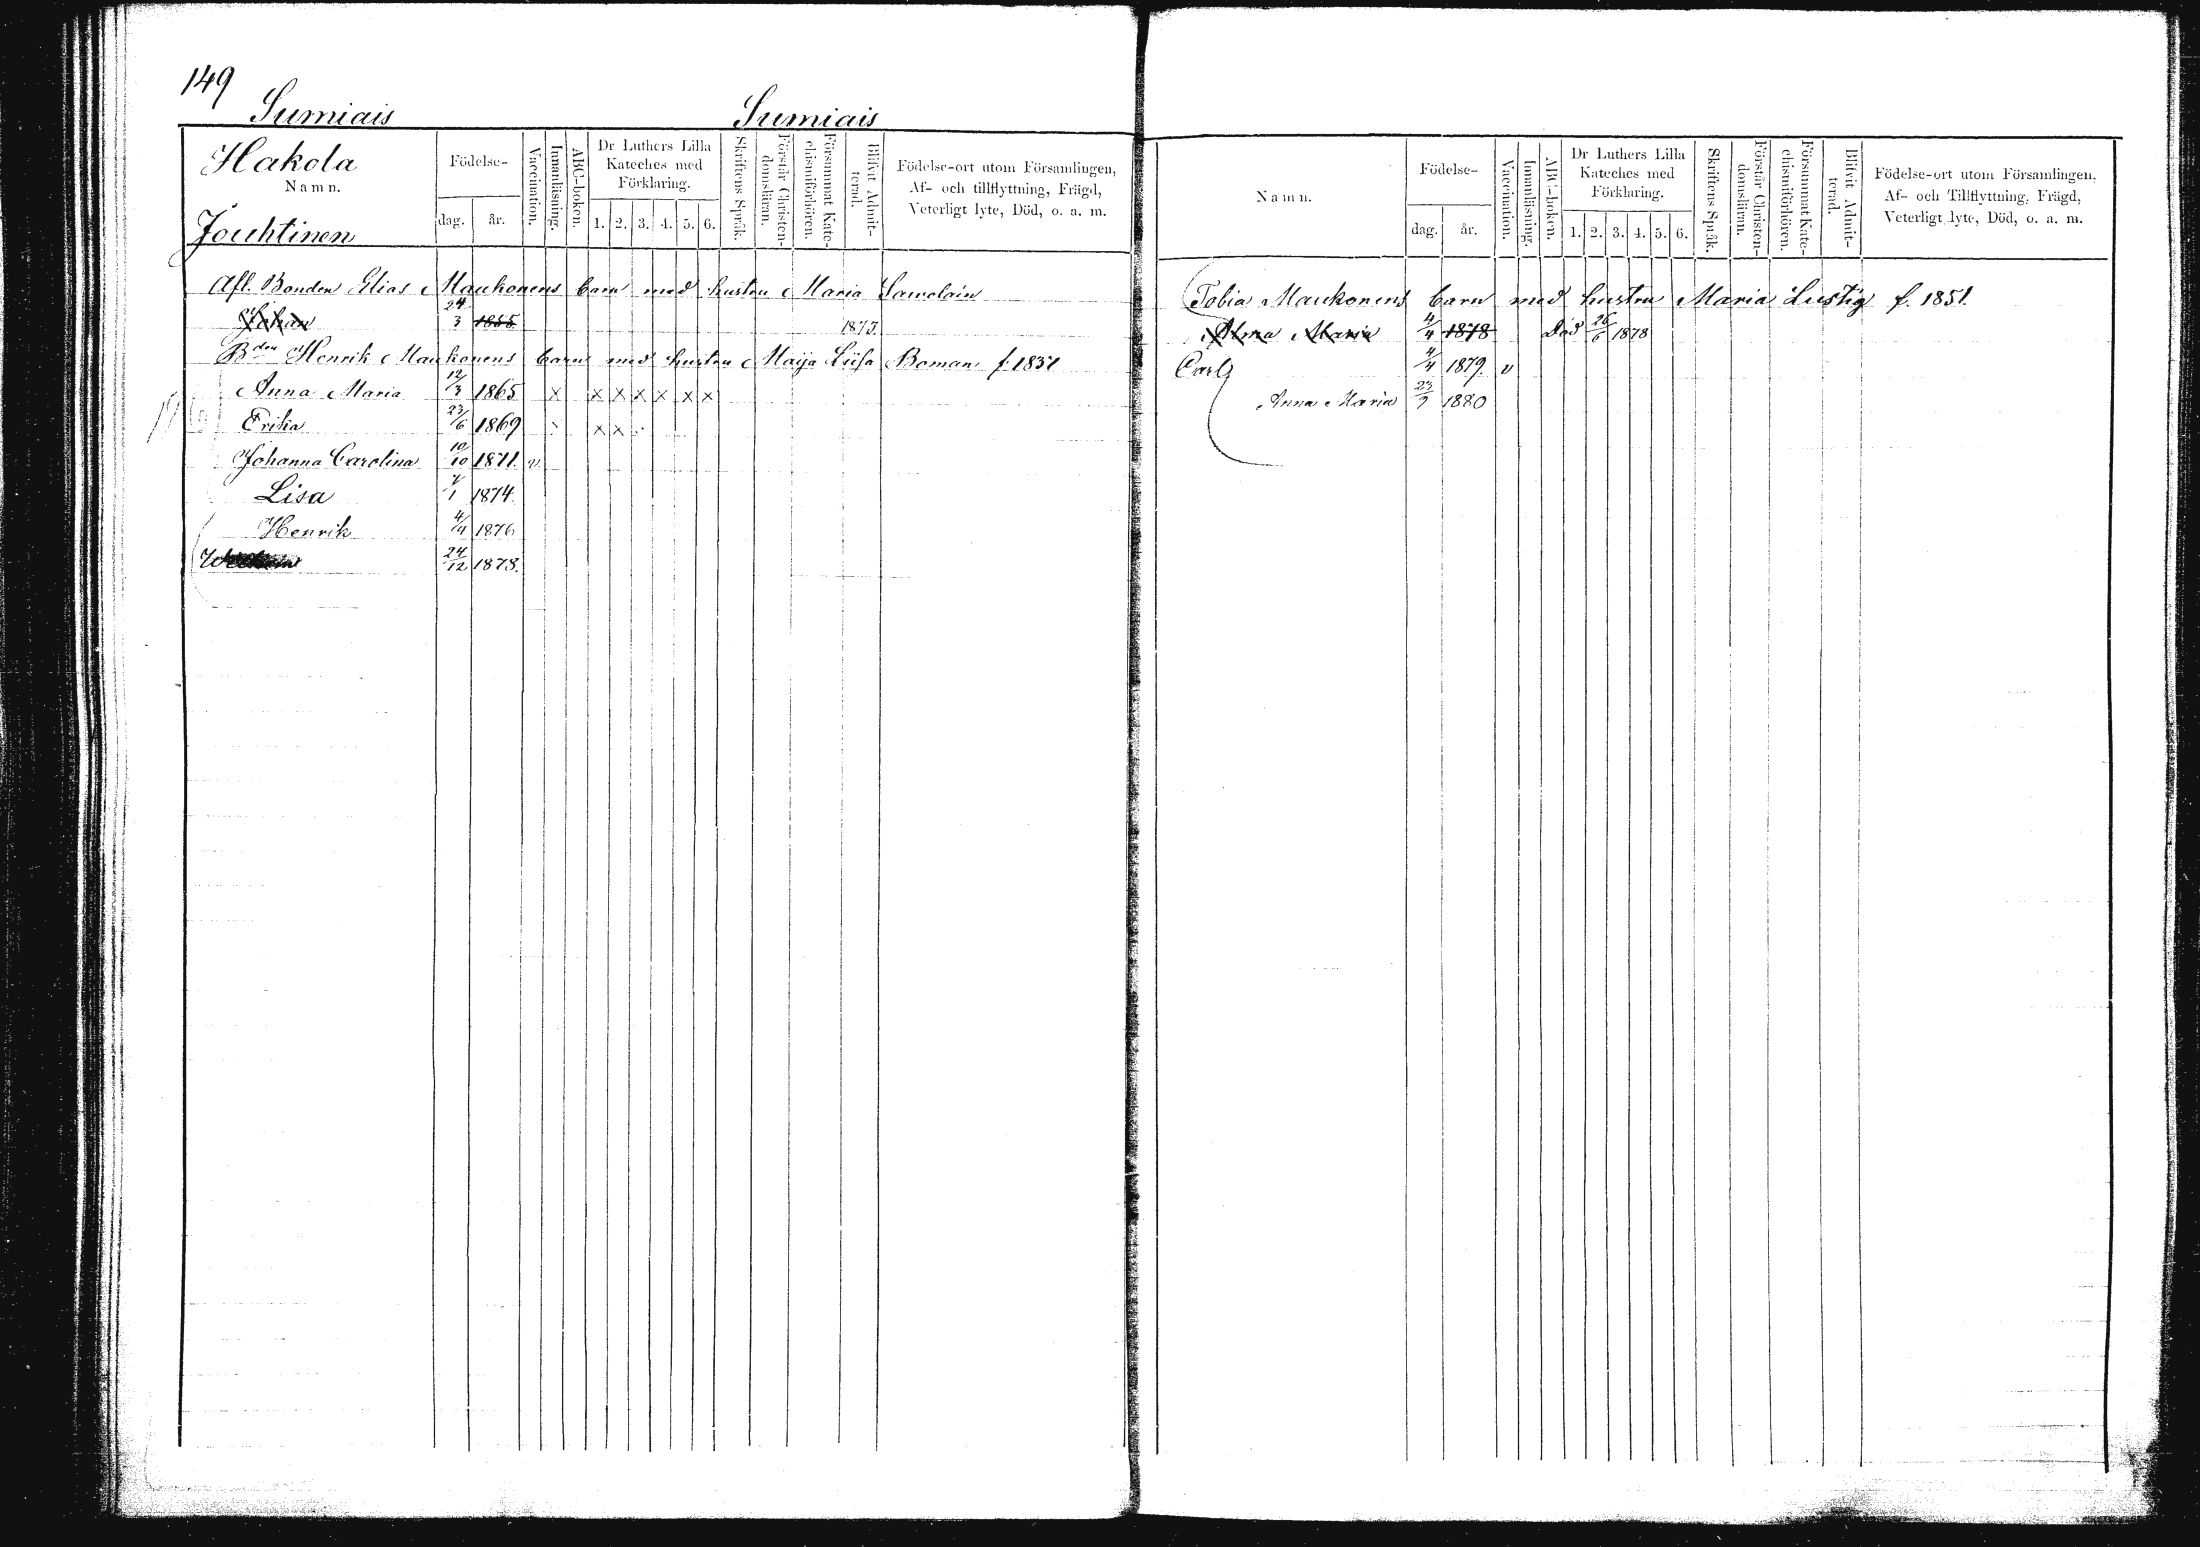 149
Sumiais Sumiais
Hakola
Namn.
Jouhtinen
Födelse-
dag. år.
Vaccination.
Innanläsning.
ABC-boken.
Dr Luthers Lilla
Kateches med
Förklaring.
1. 2. 3. 4. 5. 6.
Skriftens Språk.
Förstår Christen-
domsläran.
Försummat Kate-
chismiförhören.
Blifvit Admit-
terad.
Födelse-ort utom Församlingen,
Af- och tillflyttning, Frägd,
Veterligt lyte, Död, o. a. m.
Afl. Bonden Elias Maukonens barn med hustru Maria Sawolain
Johan 24/3 1855 1873
Bden Henrik Maukonens barn med hustru Maija Liisa Boman f. 1837
Anna Maria 12/3 1865 x x x x x x x
Erika 23/6 1869 x x
Johanna Carolina 10/10 1871 v
Lisa 7/1 1874
Henrik 4/4 1876
24/12 1878.
Namn.
Födelse-
dag. år.
Vaccination.
Innanläsning.
ABC-boken.
Dr Luthers Lilla
Kateches med
Förklaring.
1. 2. 3. 4. 5. 6.
Skriftens Språk.
Förstår Christen-
domsläran.
Försummat Kate-
chismiförhören.
Blifvit Admit-
terad.
Födelse-ort utom Församlingen,
Af- och Tillflyttning, Frägd,
Veterligt lyte, Död, o. a. m.
Tobia Maukonens barn med hustru Maria Lustig f. 1851.
Alma Maria 4/4 1878 Död 26/6 1878
Carl 4/4 1879. v
Anna Maria 23/9 1880